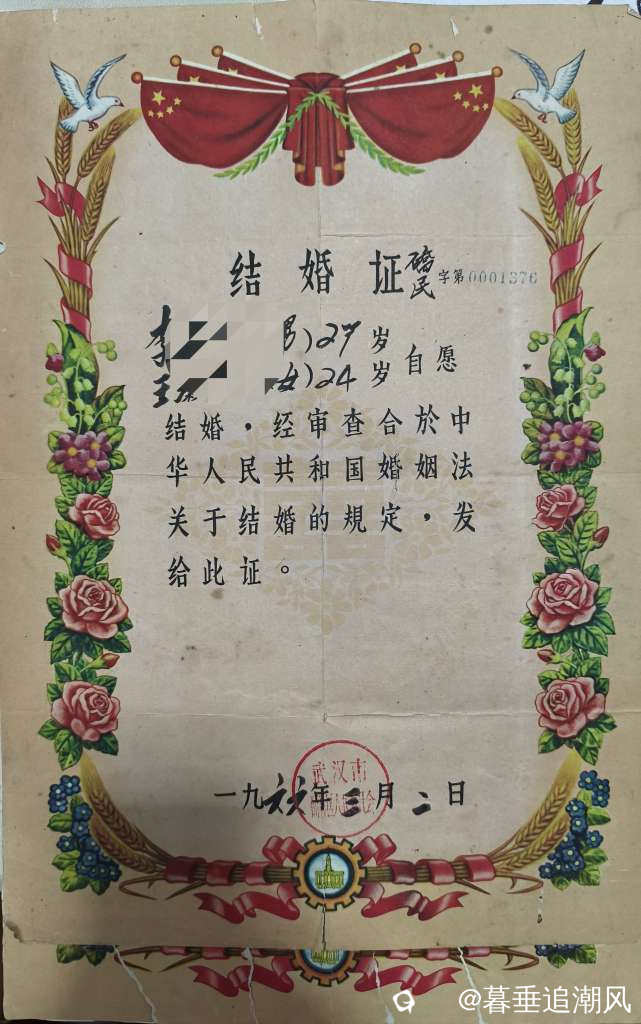 结婚证 字第0001376
李 男)27岁
王 女)24岁 自愿
结婚·经审查合於中
华人民共和国婚姻法
关于结婚的規定·发
给此证。
武汉市
一九六六年三月二日
@暮垂追潮风